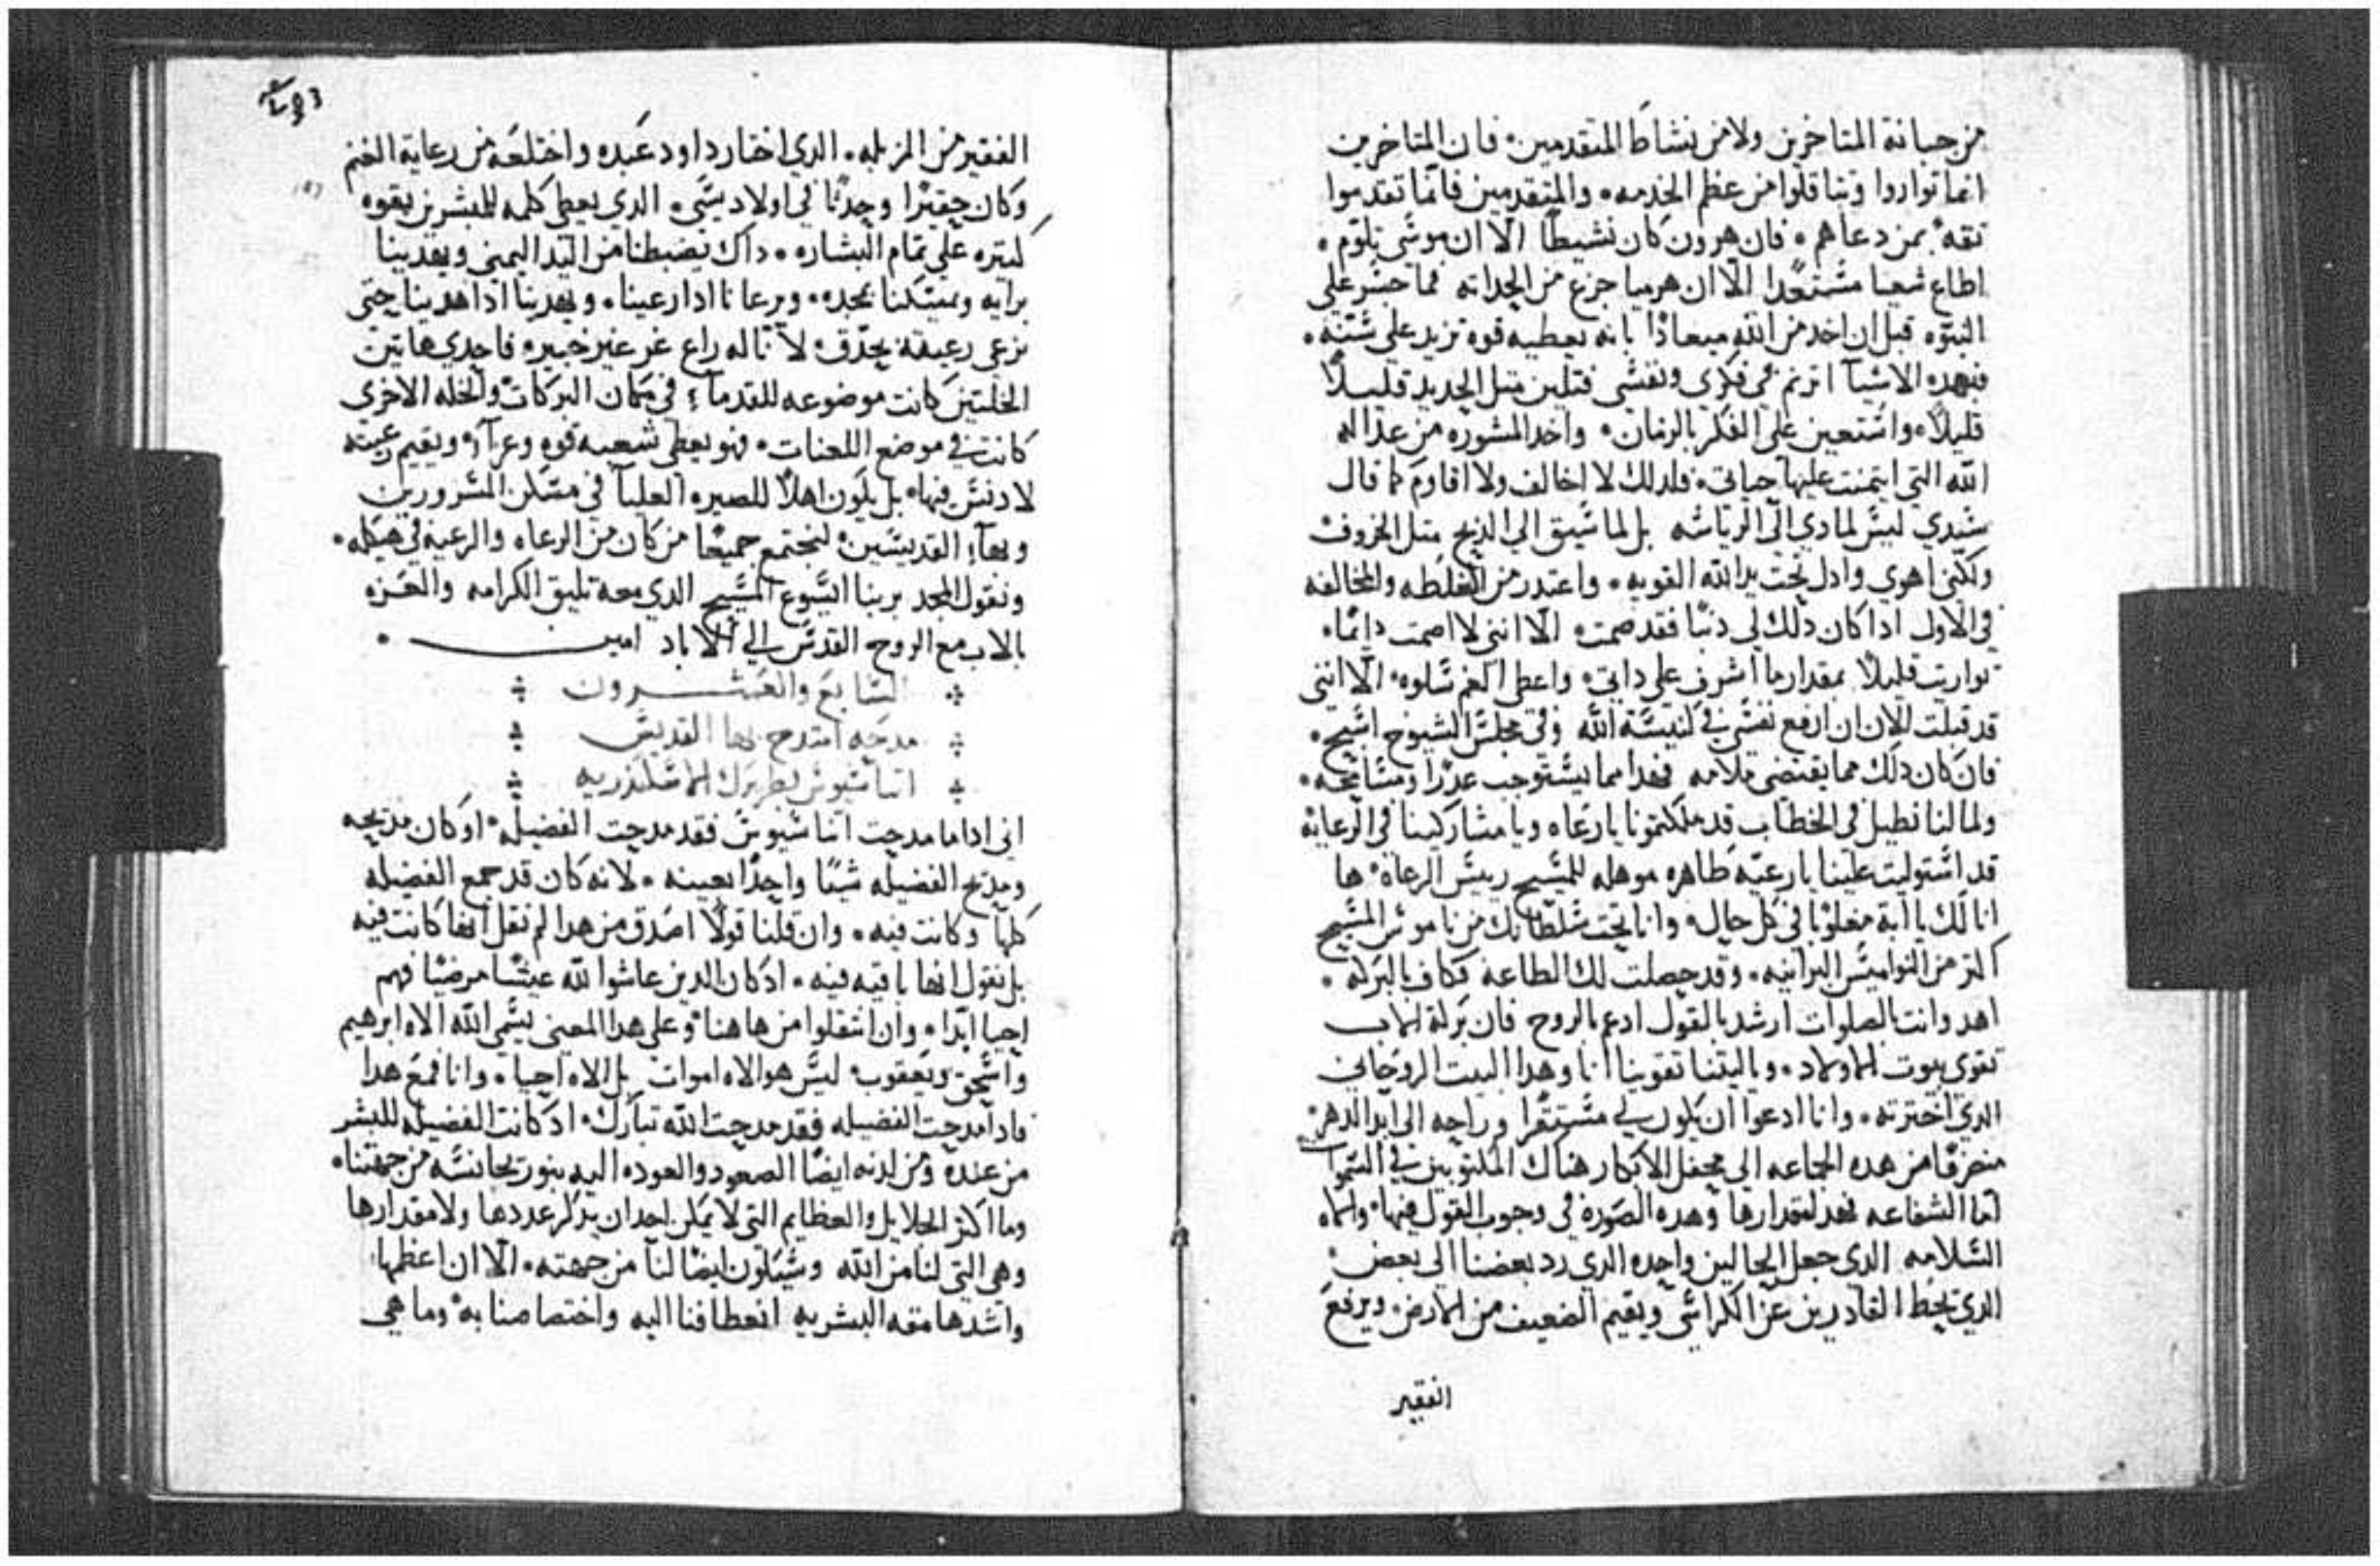 من جبانة المتاخرين ولا من نشاط المتقدمين فان المتاخرين
انما تواروا وتثاقلوا من عظم الخدمه والمتقدمين فانما تقدموا
ثقه بمن دعاهم فان هرون كان نشيطا الا ان موسى تلوم
اطاع شعيا مستعدا الا ان هرميا جزع من الحداثه فما جسر على
النبوه قبل ان اخد من الله ميعادا بانه يعطيه قوه تزيد على سنه
فبهده الاشيا اترنم في فكري ونفسي فتلين متل الحديد قليلا
قليلا واستعين على الفكر بالزمان واخد المشوره من عداله
الله التي ايتمنت عليها حياتي فلدلك لا اخالف ولا اقاوم كما قال
سيدي ليس لما دي الى الرياسه بل لما سيق الى الدبح متل الخروف
ولكني اهوي وادل تحت يد الله القويه واعتدر من الغلطه والمخالفه
في الاول ادا كان دلك لي دنبا فقد صمت الا انني لا اصمت دايما
تواريت قليلا بمقدار ما اشرف على داتي واعطى الغم سلوه الا انني
قد قبلت الان ان ارفع نفسي في كنيسة الله وفي مجلس الشيوخ اسبح
فان كان دلك مما يقتضي ملامه فهدا مما يستوجب عدرا ومسامحه
ولما لنا نطيل في الخطاب قد ملكتمونا يا رعاه ويا مشاركينا في الرعايه
قد استوليت علينا يا رعيه طاهره موهله للمسيح رييس الرعاه ها
انا لك يا ابة مغلوبا في كل حال وانا تحت سلطانك من ناموس المسيح
اكتر من النواميس البرانيه وقد حصلت لك الطاعه فكاف بالبركه
اهد وانت بالصلوات ارشد بالقول ادعم بالروح فان بركة الاب
تقوى بيوت الاولاد وياليتنا تقوينا انا وهدا البيت الروحاني
الدي اخترته وانا ادعوا ان يكون لي مستقرا وراحه الى ابد الدهر
منصرفا من هده الجماعه الى محفل الابكار هناك المكتوبين في السموات
اما الشفاعه فهد لمقدارها وهده الصوره في وجوب القول فيها واله
السلامه الدي جعل الحالين واحده الدي رد بعضنا الى بعض
الدي يحط القادرين عن الكراسي ويقيم الضعيف من الارض ويرفع
الفقير
الفقير من المزبله الدي اختار داود عبده واختلعه من رعاية الغنم
وكان حقيرا وحدثا في اولاد يسى الدي يعطى كلمه للمبشرين بقوه
كتيره على تمام البشاره داك يضبطنا من اليد اليمنى ويهدينا
برايه ويمسكنا بمجده ويرعانا ادا رعينا ويهدينا ادا هدينا حتى
نرعى رعيته بحدق لا باله راع غر غير خبير فاحدي هاتين
الخلتين كانت موضوعه للقدماء في مكان البركات والخله الاخرى
كانت في موضع اللعنات فهو يعطى شعبه قوه وعزآ ويقيم رعيته
لا دنس فيها بل يكون اهلا للصيره العليا في مسكن المسرورين
وبهاء القديسين لنجتمع جميعا من كان من الرعاه والرعيه في هيكله
ونقول المجد بربنا ايسوع المسيح الدي معه تليق الكرامه والعزه
بالاب مع الروح القدس الي الاباد امين
السابع والعشرون
مدحه امتدح بها القديس
اتناسيوس بطريرك الاسكندريه
اني اداما مدحت اتناسيوس فقد مدحت الفضيله اد كان مديحه
ومديح الفضيله شيا واحدا بعينه لانه كان قد جمع الفضيله
كلها وكانت فيه وان قلنا قولا اصدق من هدا لم نقل انها كانت فيه
بل نقول انها باقيه فيه اد كان الدين عاشوا لله عيشا مرضيا فهم
احيا ابدا وان انتقلوا من هاهنا وعلى هدا المعنى يسمى الله الاه ابرهيم
واسحق ويعقوب ليس هو الاه اموات بل الاه احيا وانا فمع هدا
فادا مدحت الفضيله فقد مدحت الله تبارك اد كانت الفضيله للبشر
من عنده ومن لدنه ايضا الصعود والعوده اليه بنور يجانسه من جهتنا
وما اكثر الجلايل والعظايم التي لا يمكن احد ان يدكر عددها ولا مقدارها
وهي التي لنا من الله وسيكون ايضا لنا من جهته الا ان اعظمها
واشدها مقه البشريه انعطافنا اليه واختصاصنا به وما هي